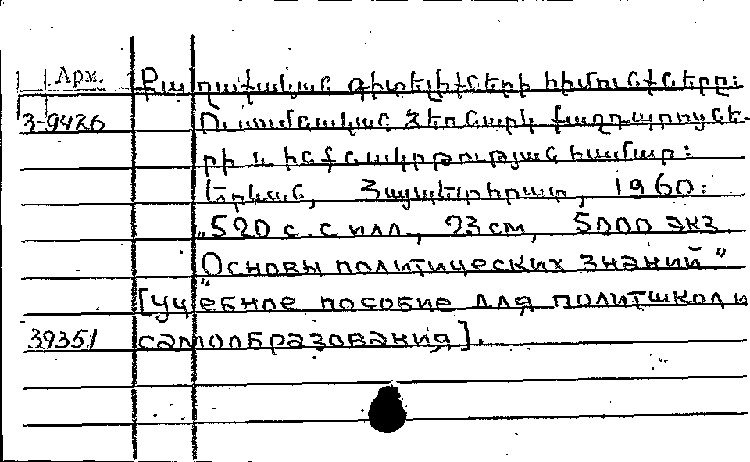 Арм. Քաղաքական գիտելիքների հիմունքները:
3-9426 Ուսումնական ձեռնարկ քաղդպրոցնե-
րի և ինքնակրթության համար:
Երևան, Հայպետհրատ, 1960:
520 с. с илл., 23 см, 5000 экз
"Основы политических знаний"
[учебное пособие для политшкол и
39351 самообразования].